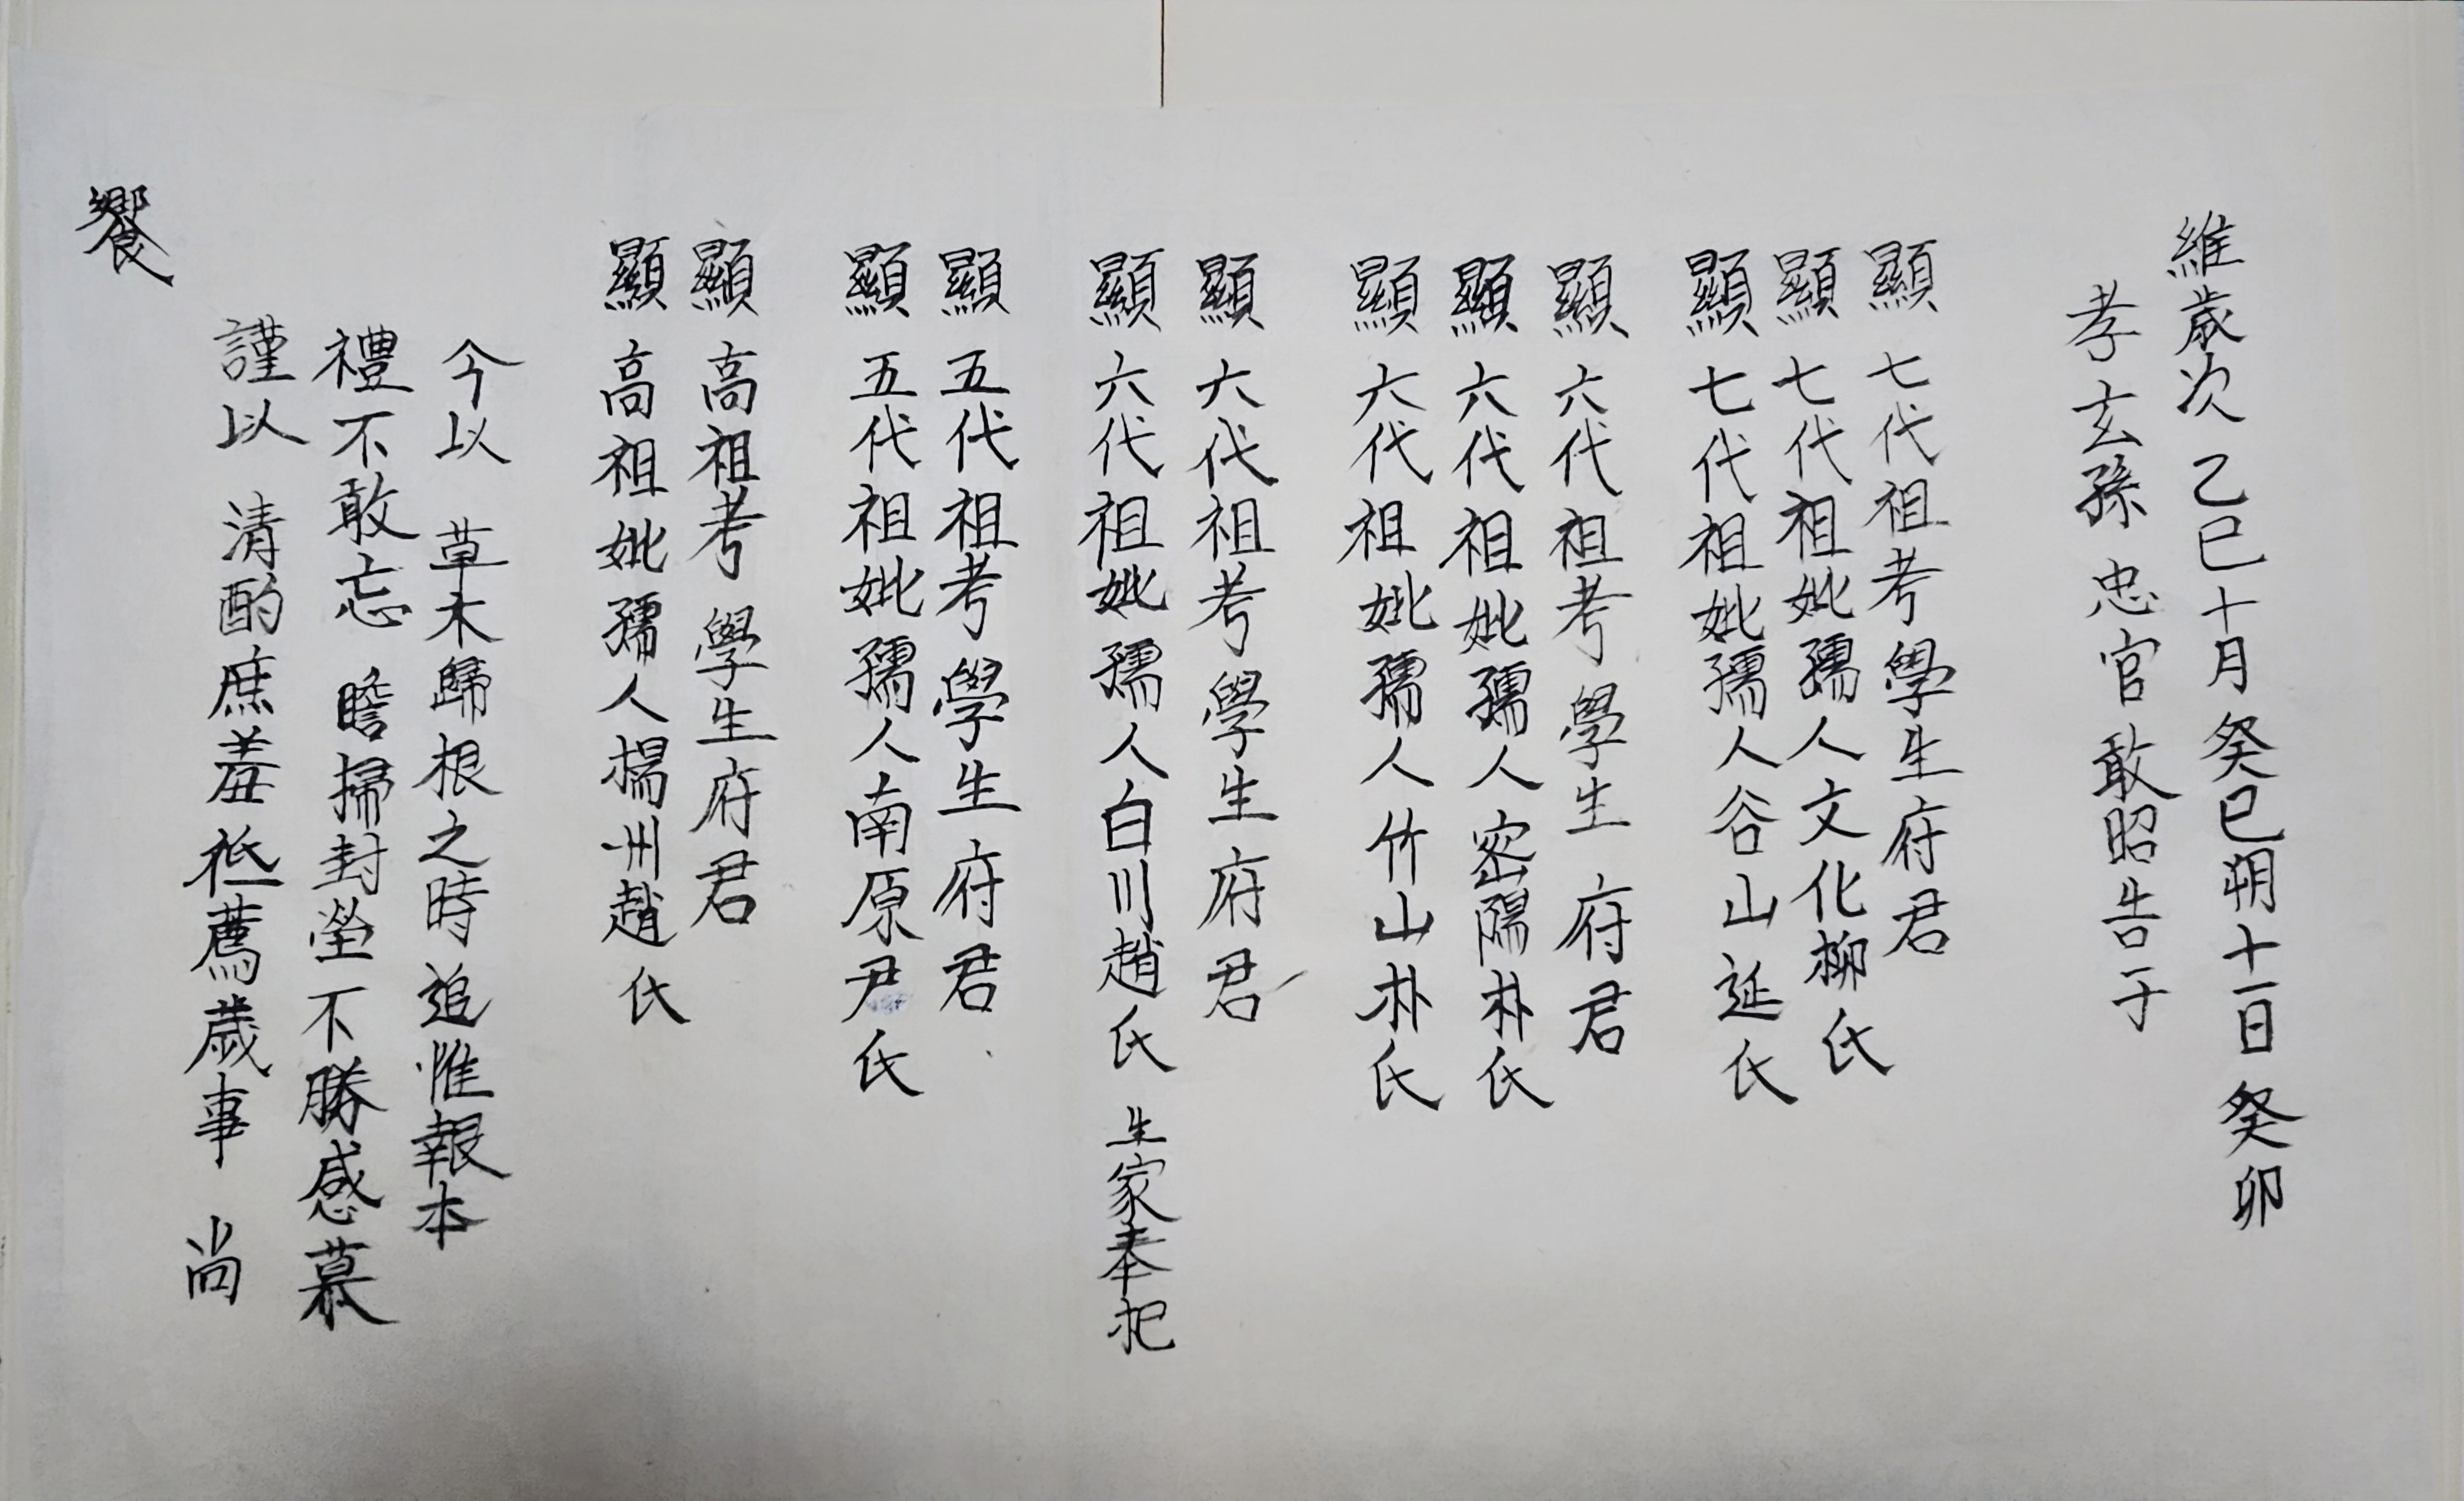 維歲次乙巳十月癸巳朔十一日癸卯
孝玄孫 忠官 敢昭告于
顯七代祖考學生府君
顯七代祖妣孺人文化柳氏
顯七代祖妣孺人谷山延氏
顯六代祖考學生府君
顯六代祖妣孺人密陽朴氏
顯六代祖妣孺人竹山朴氏
顯六代祖考學生府君
顯六代祖妣孺人白川趙氏 生家奉祀
顯五代祖考學生府君
顯五代祖妣孺人南原尹氏
顯高祖考學生府君
顯高祖妣孺人楊州趙氏
今以 草木歸根之時 追惟報本
禮不敢忘 瞻掃封塋 不勝感慕
謹以 清酌庶羞 祗薦歲事 尚
饗